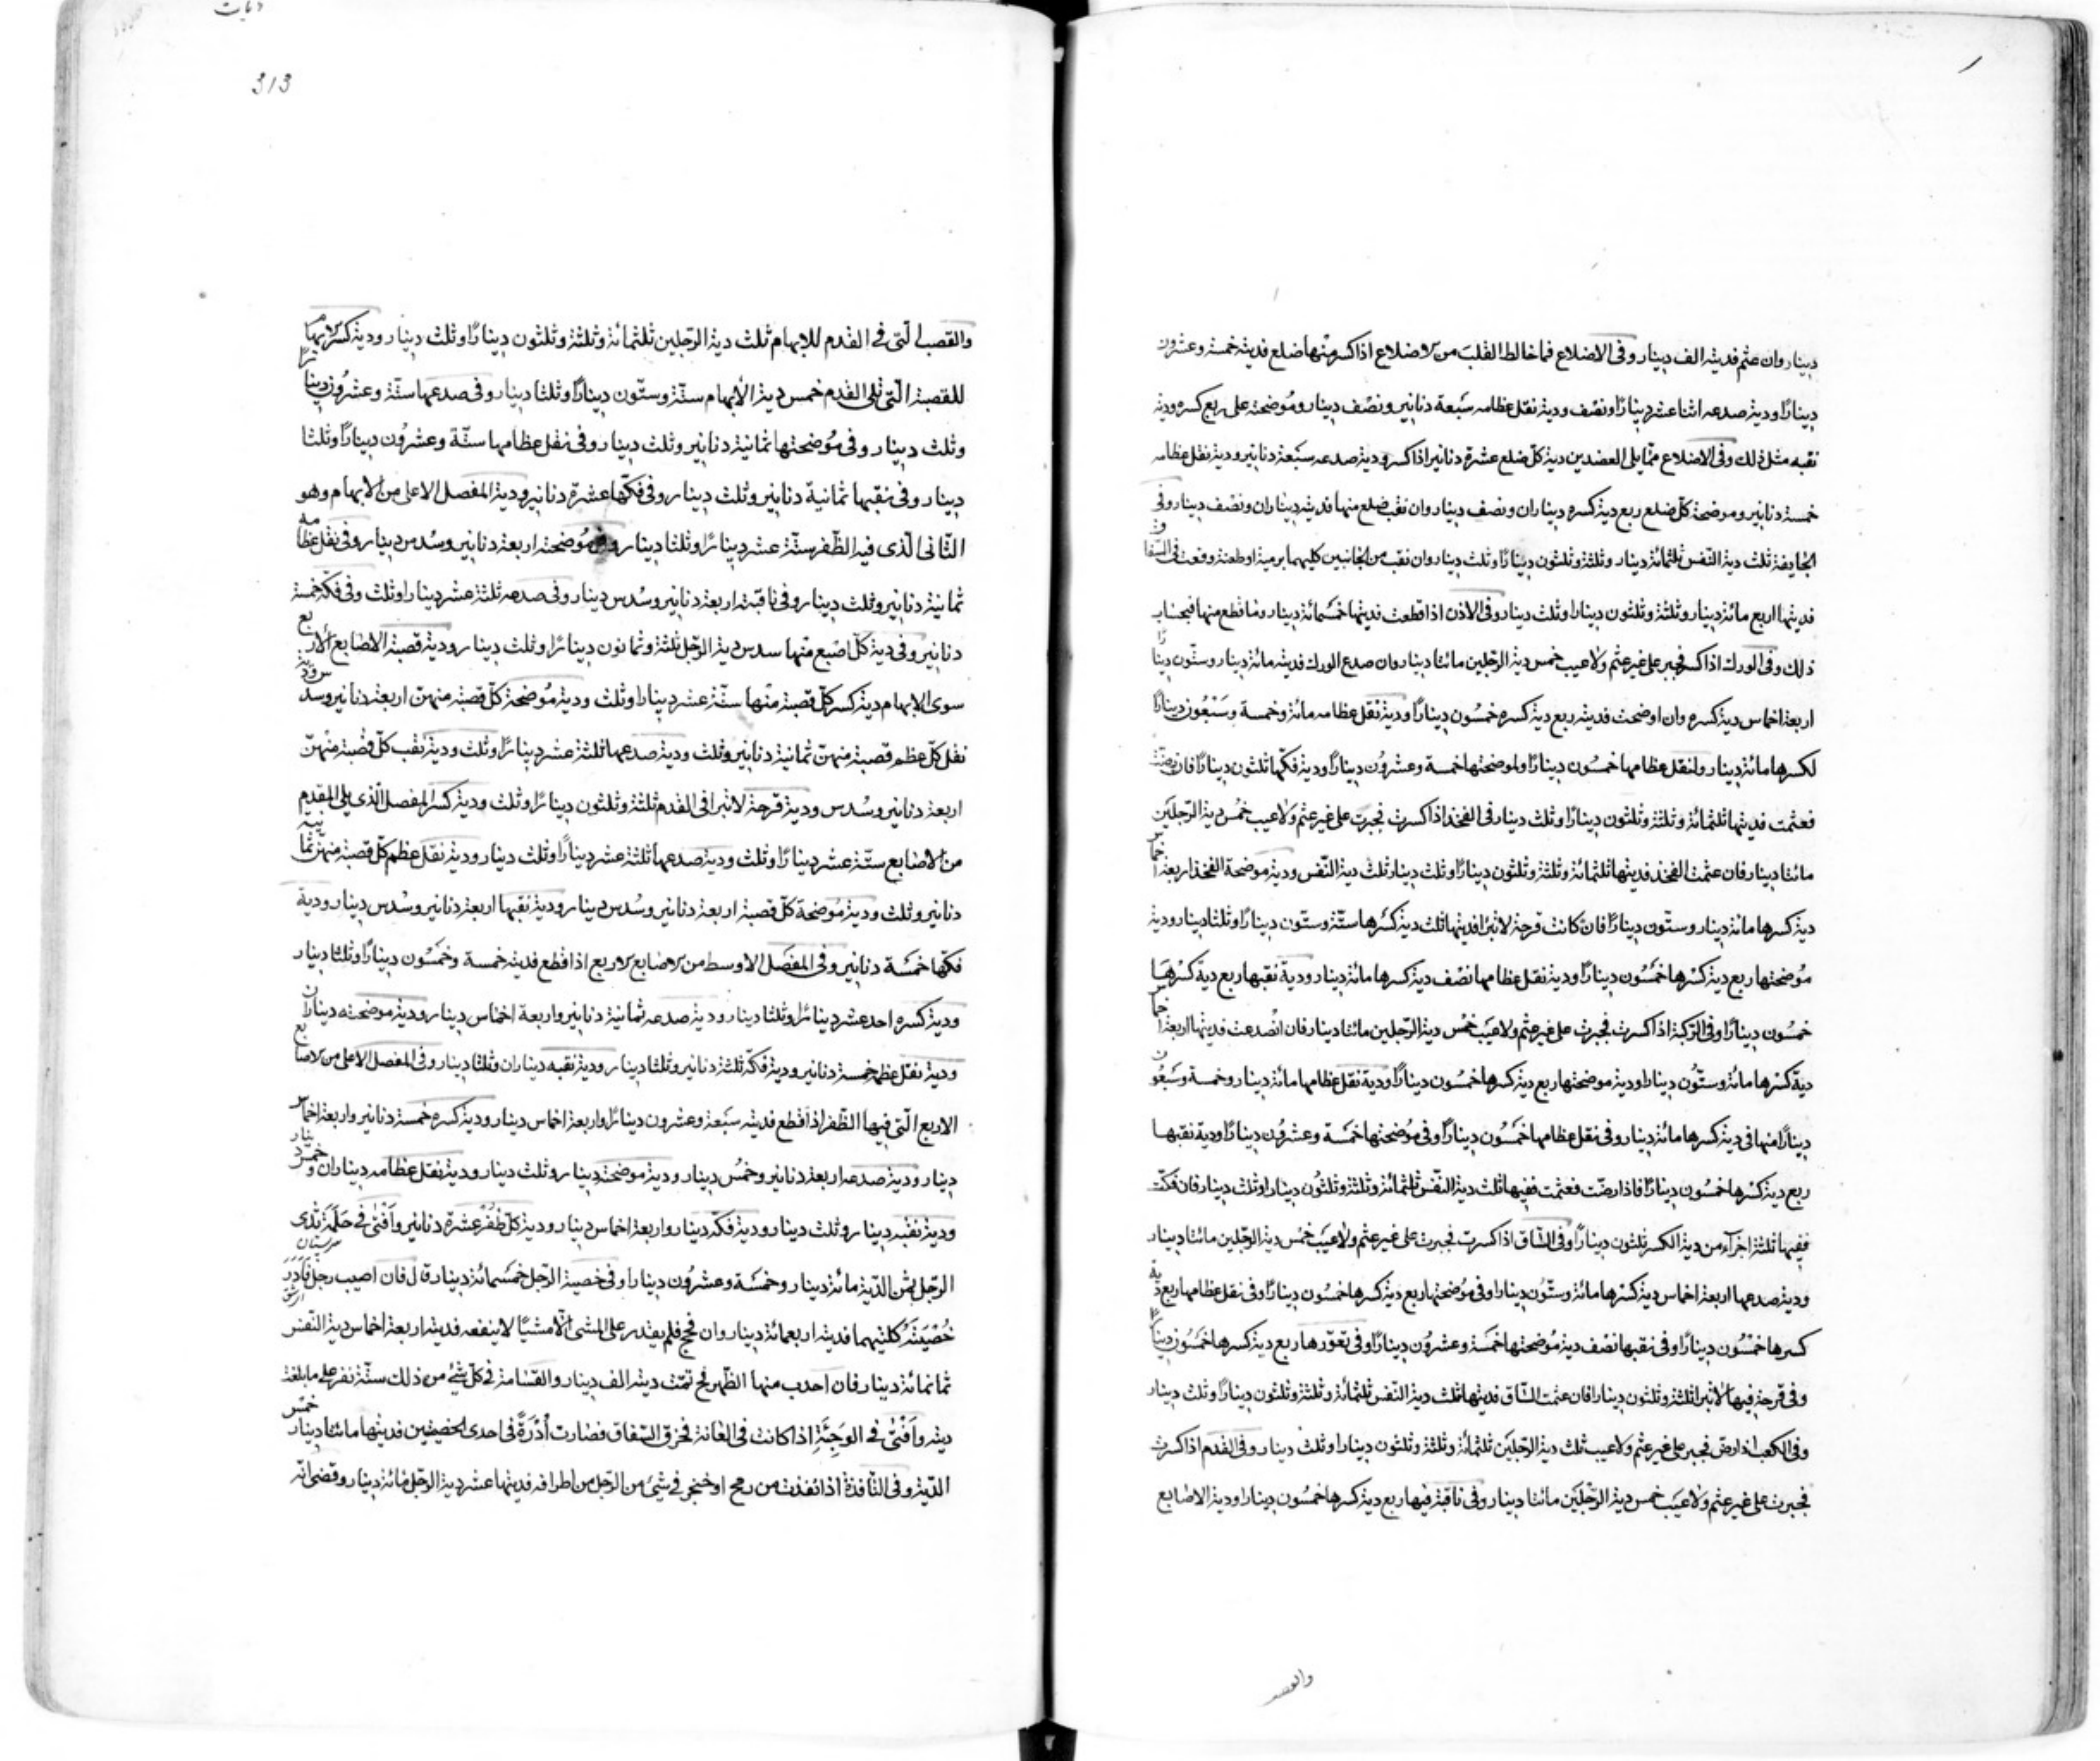 دينار وان عثم فديته الف دينار وفى الاضلاع فما خالط القلب من الاضلاع اذا كسر منها ضلع فديته خمسة وعشرون
دينارًا ودية صدعه اثنا عشر دينارًا ونصف ودية نقل عظامه سبعة دنانير ونصف دينار وموضحته على ربع كسره ودية
نقبه مثل ذلك وفى الاضلاع مما يلى العضدين دية كل ضلع عشرة دنانير اذا كسر ودية صدعه سبعة دنانير ودية نقل عظامه
خمسة دنانير وموضحة كل ضلع ربع دية كسره ديناران ونصف دينار وان نقب ضلع منها فديته ديناران ونصف دينار وفى
الجايفة ثلث دية النفس ثلثمائة دينار وثلثة وثلثون دينارًا وثلث دينار وان نقب من الجانبين كليهما برمية او طعنة وقعت فى الشفاق
فديتها اربع مائة دينار وثلثة وثلثون دينارا وثلث دينار وفى الاذن اذا قطعت فديتها خمسمائة دينار وما قطع منها فبحساب
ذلك وفى الورك اذا كسر فجبر على غير عثم ولا عيب خمس دية الرجلين مائتا دينار وان صدع الورك فديته مائة دينار وستون دينارًا
اربعة اخماس دية كسره وان اوضحت فديته ربع دية كسره خمسون دينارًا ودية نقل عظامه مائة وخمسة وسبعون دينارًا
لكسرها مائة دينار ولنقل عظامها خمسون دينارًا ولموضحتها خمسة وعشرون دينارًا ودية فكها ثلثون دينارًا فان رضت
فعثمت فديتها ثلثمائة وثلثة وثلثون دينارًا وثلث دينار فى الفخذ اذا كسرت فجبرت على غير عثم ولا عيب خمس دية الرجلين
مائتا دينار فان عثمت الفخذ فديتها ثلثمائة وثلثة وثلثون دينارًا وثلث دينار ثلث دية النفس ودية موضحة الفخذ اربعة اخماس
دية كسرها مائة دينار وستون دينارًا فان كانت قرحة لا تبرأ فديتها ثلث دية كسرها ستة وستون دينارًا وثلثا دينار ودية
موضحتها ربع دية كسرها خمسون دينارًا ودية نقل عظامها نصف دية كسرها مائة دينار ودية نقبها ربع دية كسرها
خمسون دينارًا وفى الركبة اذا كسرت فجبرت على غير عثم ولا عيب خمس دية الرجلين مائتا دينار فان انصدعت فديتها اربعة اخماس
دية كسرها مائة وستون دينارا ودية موضحتها ربع دية كسرها خمسون دينارًا ودية نقل عظامها مائة دينار وخمسة وسبعون
دينارًا منها فى دية كسرها مائة دينار وفى نقل عظامها خمسون دينارًا وفى موضحتها خمسة وعشرون دينارًا ودية نقبها
ربع دية كسرها خمسون دينارًا فاذا رضت فعثمت ففيها ثلث دية النفس ثلثمائة وثلثة وثلثون دينارا وثلث دينار فان فكت
ففيها ثلثة اجزاء من دية الكسر ثلثون دينارًا وفى الساق اذا كسرت فجبرت على غير عثم ولا عيب خمس دية الرجلين مائتا دينار
ودية صدعها اربعة اخماس دية كسرها مائة وستون دينارا وفى موضحتها ربع دية كسرها خمسون دينارًا وفى نقل عظامها ربع دية
كسرها خمسون دينارًا وفى نقبها نصف دية موضحتها خمسة وعشرون دينارًا وفى تعورها ربع دية كسرها خمسون دينارًا
وفى قرحة فيها لا تبرا ثلثة وثلثون دينارا فان عثمت الساق فديتها ثلث دية النفس ثلثمائة وثلثة وثلثون دينارًا وثلث دينار
وفى الكعب اذا رض فجبر على غير عثم ولا عيب ثلث دية الرجلين ثلثمائة وثلثة وثلثون دينارا وثلث دينار وفى القدم اذا كسرت
فجبرت على غير عثم ولا عيب خمس دية الرجلين مائتا دينار وفى ناقبة فيها ربع دية كسرها خمسون دينارا ودية الاصابع
والقصب
313
والقصب التى فى القدم للابهام ثلث دية الرجلين ثلثمائة وثلثة وثلثون دينارًا وثلث دينار ودية كسر الابهام
للقصبة التى تلى القدم خمس دية الابهام ستة وستون دينارًا وثلثا دينار وفى صدعها ستة وعشرون دينارًا
وثلث دينار وفى موضحتها ثمانية دنانير وثلث دينار وفى نقل عظامها ستة وعشرون دينارًا وثلثا
دينار وفى نقبها ثمانية دنانير وثلث دينار وفى فكها عشرة دنانير ودية المفصل الاعلى من الابهام وهو
الثانى الذى فيه الظفر ستة عشر دينارًا وثلثا دينار وفى موضحته اربعة دنانير وسدس دينار وفى نقل عظامه
ثمانية دنانير وثلث دينار وفى ناقبته اربعة دنانير وسدس دينار وفى صدعه ثلثة عشر دينارا وثلث وفى فكه خمسة
دنانير وفى دية كل اصبع منها سدس دية الرجل ثلثة وثمانون دينارًا وثلث دينار ودية قصبة الاصابع الاربع
سوى الابهام دية كسر كل قصبة منها ستة عشر دينارا وثلث ودية موضحة كل قصبة منهن اربعة دنانير وسدس ودية
نقل كل عظم قصبة منهن ثمانية دنانير وثلث ودية صدعها ثلثة عشر دينارًا وثلث ودية نقب كل قصبة منهن
اربعة دنانير وسدس ودية قرحة لا تبرا فى القدم ثلثة وثلثون دينارًا وثلث ودية كسر المفصل الذى يلى القدم
من الاصابع ستة عشر دينارًا وثلث ودية صدعها ثلثة عشر دينارًا وثلث دينار ودية نقل عظم كل قصبة منهن ثمانية
دنانير وثلث ودية موضحة كل قصبة اربعة دنانير وسدس دينار ودية نقبها اربعة دنانير وسدس دينار ودية
فكها خمسة دنانير وفى المفصل الاوسط من الاصابع الاربع اذا قطع فديته خمسة وخمسون دينارًا وثلثا دينار
ودية كسره احد عشر دينارًا وثلثا دينار ودية صدعه ثمانية دنانير واربعة اخماس دينار ودية موضحته ديناران
ودية نقل عظمه خمسة دنانير ودية فكه ثلثة دنانير وثلثا دينار ودية نقبه ديناران وثلثا دينار وفى المفصل الاعلى من الاصابع
الاربع التى فيها الظفر اذا قطع فديته سبعة وعشرون دينارًا واربعة اخماس دينار ودية كسره خمسة دنانير واربعة اخماس
دينار ودية صدعه اربعة دنانير وخمس دينار ودية موضحته دينار وثلث دينار ودية نقل عظامه ديناران وخمس دينار
ودية نقبه دينار وثلث دينار ودية فكه دينار واربعة اخماس دينار ودية كل ظفر عشرة دنانير وافتى فى حلمة ثدى
الرجل ثمن الدية مائة دينار وخمسة وعشرون دينارا وفى خصية الرجل خمسمائة دينار قال فان اصيب رجل فادر
خصيته كلتيهما فديته اربعمائة دينار وان فحج فلم يقدر على المشى الا مشيًا لا ينفعه فديته اربعة اخماس دية النفس
ثمانمائة دينار فان احدب منها الظهر فح تمت ديته الف دينار والقسامة فى كل شئ من ذلك ستة نفر على ما بلغت
ديته وافتى فى الوجيئة اذا كانت فى العانة فخرق السفاق فصارت ادرة فى احدى الخصيتين فديتها مائتا دينار خمس
الدية وفى النافذة اذا نفذت من رمح او خنجر فى شئ من الرجل من اطرافه فديتها عشر دية الرجل مائة دينار وقضى انه